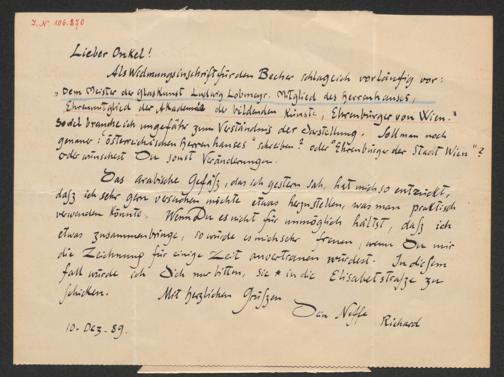 J.N. 106.870
Lieber Onkel!
Als Widmungsinschrift für den Becher schlage ich vorläufig vor:
„Dem Meister der Glaskunst Ludwig Lobmeyr, Mitglied des Herrenhauses,
Ehrenmitglied der Akademie der bildenden Künste, Ehrenbürger von Wien."
So viel brauche ich ungefähr zum Verständnis der Darstellung. Soll man noch
genauer: „österreichischen Herrenhauses" schreiben? oder "Ehrenbürger der Stadt Wien"?
Oder wünschest Du sonst Veränderungen.
Das arabische Gefäß, das ich gestern sah, hat mich so entzückt,
daß ich sehr gern versuchen möchte etwas herzustellen, was man praktisch
verwenden könnte. Wenn Du es nicht für unmöglich hältst, daß ich
etwas zusammenbringe, so würde es mich sehr freuen, wenn Du mir
die Zeichnung für einige Zeit anvertrauen würdest. In diesem
Fall würde ich Dich nur bitten, sie in die Elisabetstraße zu
schicken. Mit herzlichen Grüßen
Dein Neffe
Richard
10. Dez. 89.